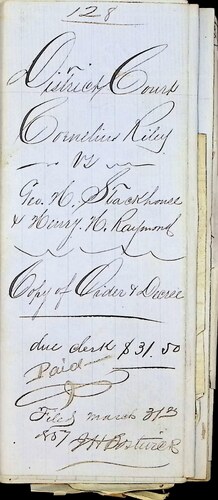 128
District Court
Cornelius Riley
vs
Geo. H. Stackhouse
& Henry. H. Raymond
Copy of Order & Decree
due clerk $31.50
Paid
Filed march 31st
1857